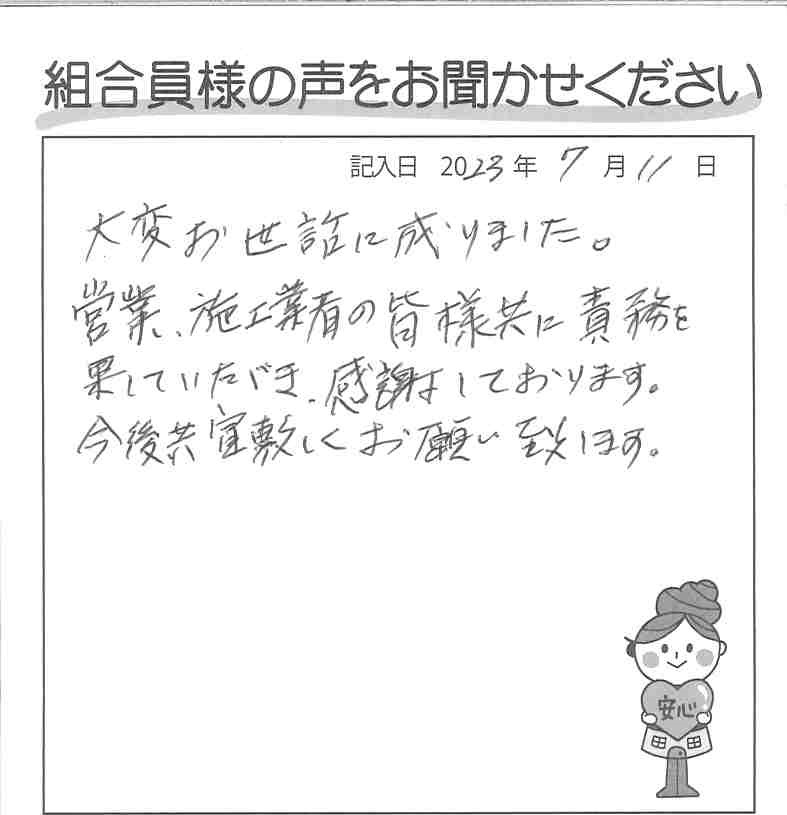 組合員様の声をお聞かせください
記入日 2023年 7月 11日
大変お世話に成りました。
営業、施工業者の皆様共に責務を
果していただき、感謝しております。
今後共宜敷しくお願い致します。
安心